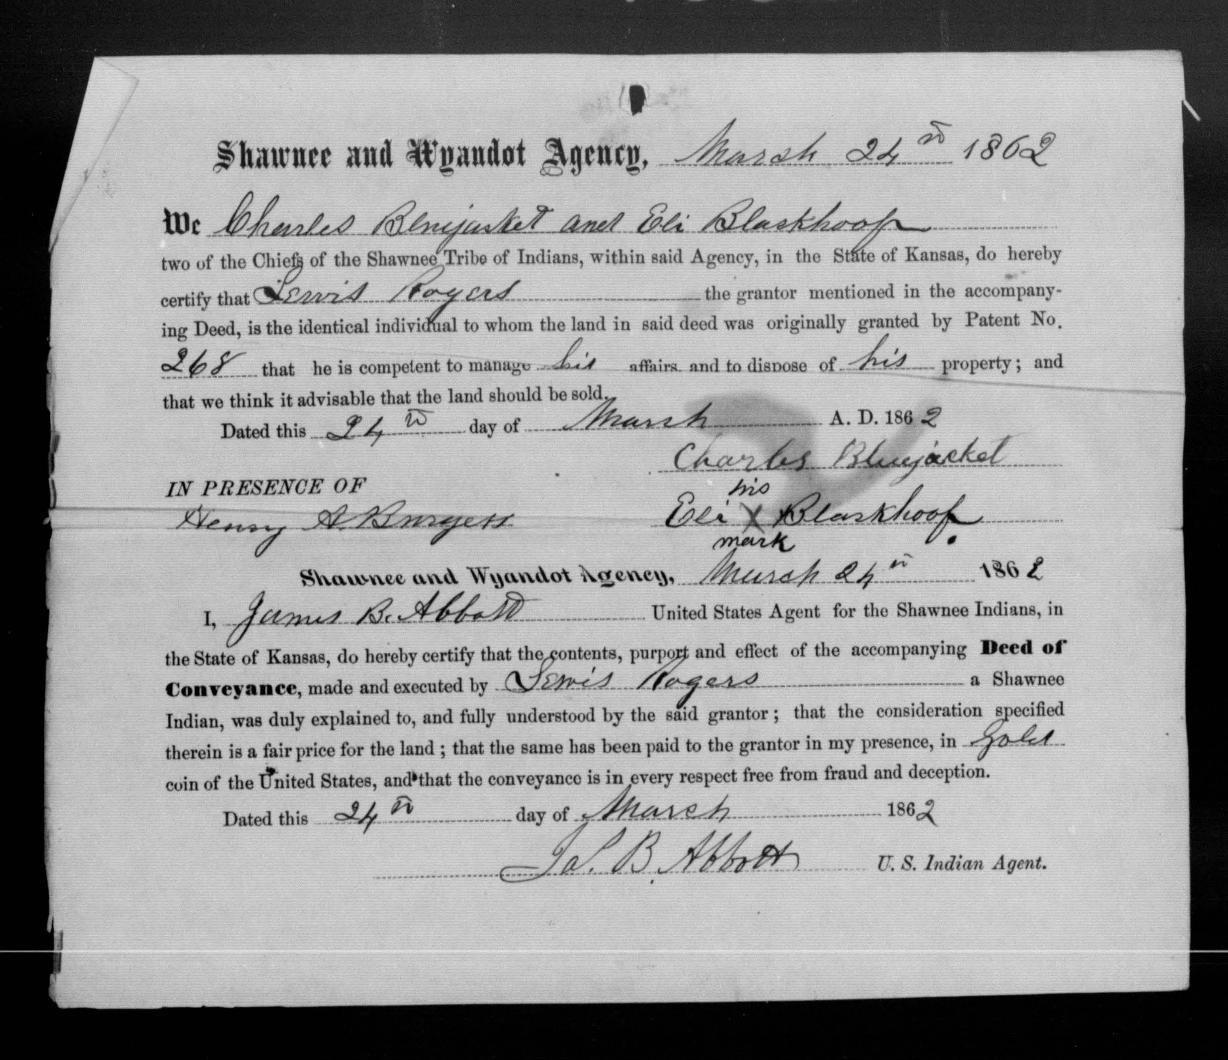 Shawnee and Wyandot Agency, March 24th 1862
We Charles Bluejacket and Eli Blackhoof
two of the Chiefs of the Shawnee Tribe of Indians, within said Agency, in the State of Kansas, do hereby
certify that Lewis Rogers the grantor mentioned in the accompany-
ing Deed, is the identical individual to whom the land in said deed was originally granted by Patent No.
268 that he is competent to manage his affairs and to dispose of his property; and
that we think it advisable that the land should be sold.
Dated this 24th day of March A. D. 1862
Charles Bluejacket
IN PRESENCE OF
his
Henry A Burgess Eli X Blackhoof
mark
Shawnee and Wyandot Agency, March 24th 1862
I, James B. Abbott United States Agent for the Shawnee Indians, in
the State of Kansas, do hereby certify that the contents, purport and effect of the accompanying Deed of
Conveyance, made and executed by Lewis Rogers a Shawnee
Indian, was duly explained to, and fully understood by the said grantor; that the consideration specified
therein is a fair price for the land; that the same has been paid to the grantor in my presence, in Gold
coin of the United States, and that the conveyance is in every respect free from fraud and deception.
Dated this 24th day of March 1862
Jas. B. Abbott U. S. Indian Agent.